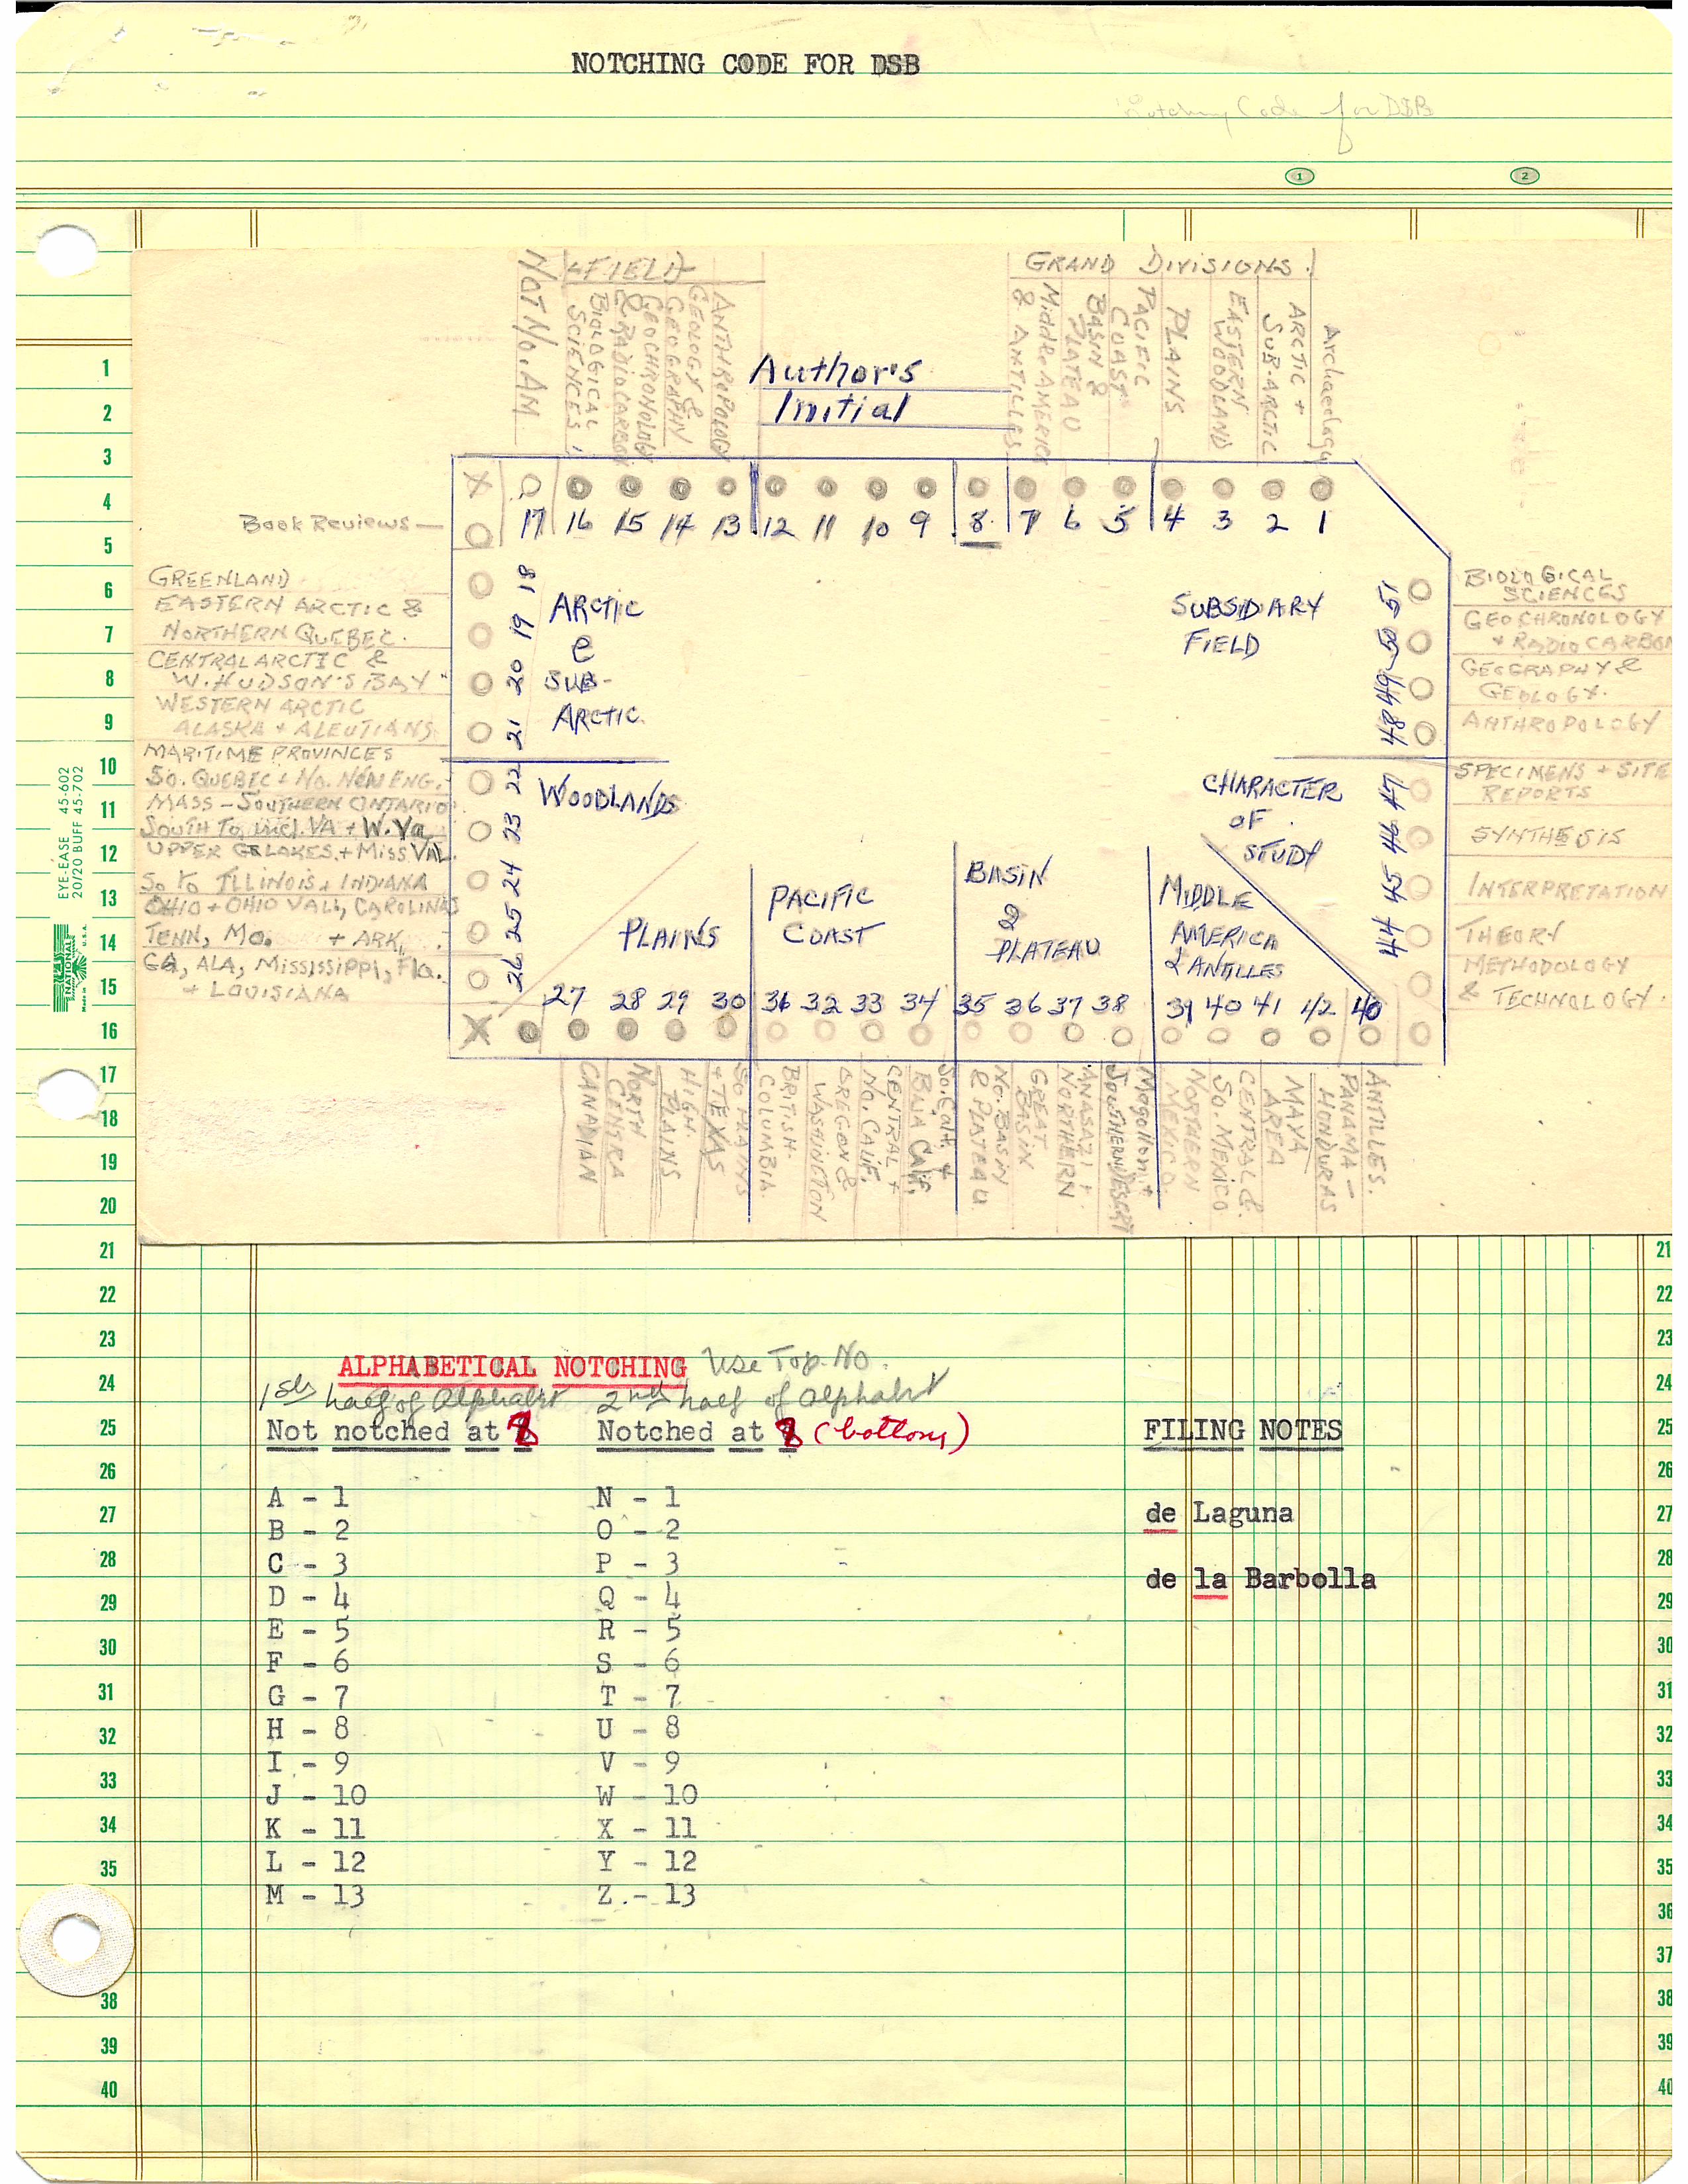 NOTCHING CODE FOR DSB
Notching Code for DSB
1 2
NOT No. AM.
FIELD
BIOLOGICAL SCIENCES
GEOCHRONOLOGY & RADIOCARBON
GEOLOGY & GEOGRAPHY
ANTHROPOLOGY
Author's
Initial
GRAND DIVISIONS
Middle AMERICA & ANTILLES
BASIN & PLATEAU
PACIFIC COAST
PLAINS
EASTERN WOODLAND
ARCTIC + SUB-ARCTIC
Archaeology
X
17 16 15 14 13 12 11 10 9 8 7 6 5 4 3 2 1
Book Reviews
GREENLAND
EASTERN ARCTIC &
NORTHERN QUEBEC.
CENTRAL ARCTIC &
W. HUDSON'S BAY
WESTERN ARCTIC
ALASKA + ALEUTIANS
MARITIME PROVINCES
SO. QUEBEC + NO. NEW ENG.
MASS - SOUTHERN ONTARIO
SOUTH TO incl. VA + W. Va
UPPER G LAKES + MISS VAL.
SO TO ILLINOIS + INDIANA
OHIO + OHIO VALL, CAROLINAS
TENN, MO. + ARK.
GA, ALA, MISSISSIPPI, Fla.
+ LOUISIANA
18
19
20
21
22
23
24
25
26
ARCTIC
e
SUB-
ARCTIC.
WOODLANDS
PLAINS
PACIFIC
COAST
BASIN
&
PLATEAU
MIDDLE
AMERICA
& ANTILLES
SUBSIDIARY
FIELD
CHARACTER
OF
STUDY
51
50
49
48
47
46
45
44
BIOLOGICAL
SCIENCES
GEOCHRONOLOGY
+ RADIO CARBON
GEOGRAPHY &
GEOLOGY.
ANTHROPOLOGY
SPECIMENS + SITE
REPORTS
SYNTHESIS
INTERPRETATION
THEORY
METHODOLOGY
& TECHNOLOGY.
27 28 29 30 36 32 33 34 35 36 37 38 39 40 41 42 40
X
CANADIAN
NORTH CENTRA
HIGH PLAINS
SO PLAINS + TEXAS
BRITISH COLUMBIA.
OREGON & WASHINGTON
NO. CALIF.
CENTRAL +
SO. Calif + BAJA Calif.
NO. BASIN & PLATEAU.
GREAT BASIN
ANASAZI + NORTHERN
Mogollon + SOUTHERN DESERT
NORTHERN MEXICO.
CENTRAL & SO. MEXICO
MAYA AREA
PANAMA - HONDURAS
ANTILLES.
EYE-EASE 45-602
20/20 BUFF 45-702
NATIONAL
Made in U.S.A.
1
2
3
4
5
6
7
8
9
10
11
12
13
14
15
16
17
18
19
20
21 21
22 22
23 23
ALPHABETICAL NOTCHING Use Top No.
24 24
1st half of Alphabet 2nd half of alphabet
25 Not notched at 8 Notched at 8 (bottom) FILING NOTES 25
26 26
A - 1 N - 1
27 de Laguna 27
B - 2 O - 2
28 C - 3 P - 3 28
de la Barbolla
29 D - 4 Q - 4 29
E - 5 R - 5
30 F - 6 S - 6 30
31 G - 7 T - 7 31
32 H - 8 U - 8 32
I - 9 V - 9
33 J - 10 W - 10 33
34 K - 11 X - 11 34
35 L - 12 Y - 12 35
M - 13 Z.- 13
36
37
38 38
39 39
40 40